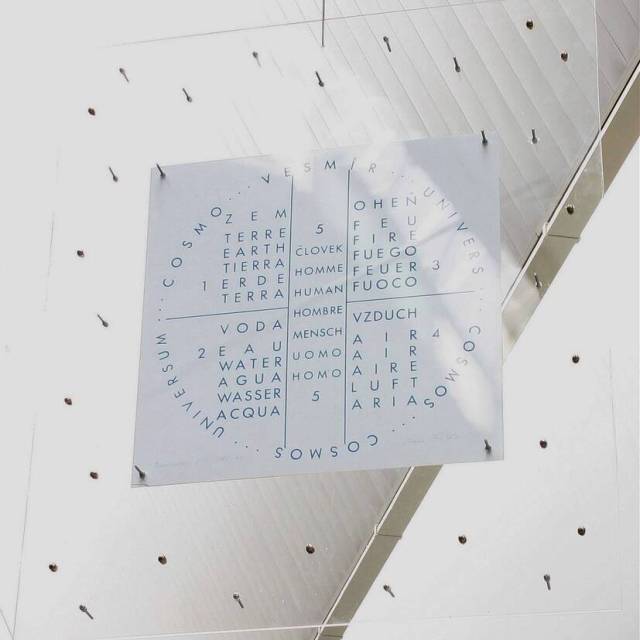 VESMÍR... UNIVERS... COSMOS... COSMOS... UNIVERSUM... COSMO...
Z E M
TERRE
EARTH
TIERRA
1 ERDE
TERRA
5
ČLOVEK
HOMME
HUMAN
HOMBRE
MENSCH
UOMO
HOMO
5
OHEŇ
FEU
FIRE
FUEGO
FEUER 3
FUOCO
VODA
2 EAU
WATER
AGUA
WASSER
ACQUA
VZDUCH
AIR 4
AIR
AIRE
LUFT
ARIA